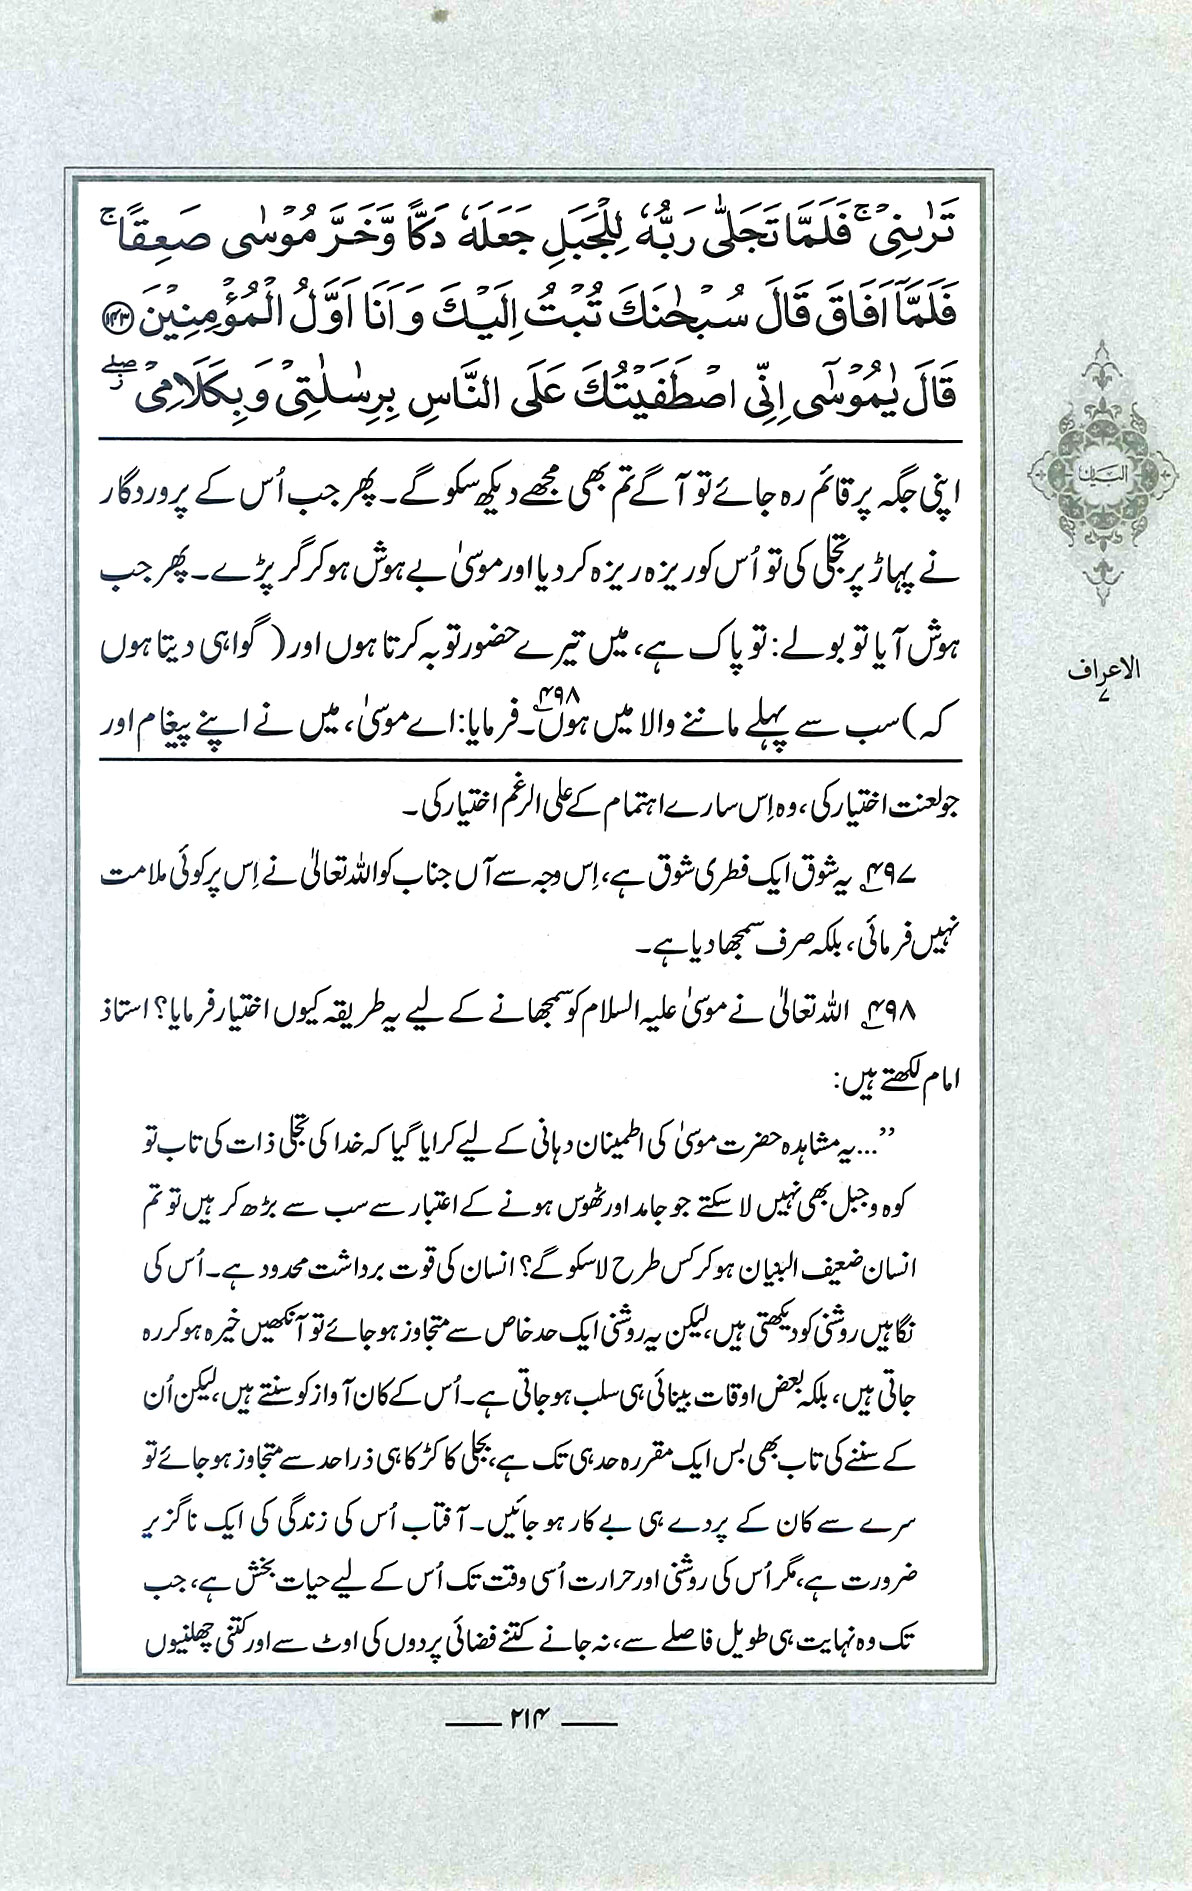 تَرٰىنِیْ ۚ فَلَمَّا تَجَلّٰی رَبُّهٗ لِلْجَبَلِ جَعَلَهٗ دَكًّا وَّخَرَّ مُوْسٰی صَعِقًا ۚ
فَلَمَّاۤ اَفَاقَ قَالَ سُبْحٰنَكَ تُبْتُ اِلَیْكَ وَاَنَا اَوَّلُ الْمُؤْمِنِیْنَ ﴿۱۴۳﴾
قَالَ یٰمُوْسٰۤی اِنِّی اصْطَفَیْتُكَ عَلَی النَّاسِ بِرِسٰلٰتِیْ وَبِكَلَامِیْ ۖز
اپنی جگہ پر قائم رہ جائے تو آگے تم بھی مجھے دیکھ سکو گے۔ پھر جب اُس کے پروردگار
نے پہاڑ پر تجلی کی تو اُس کو ریزہ ریزہ کر دیا اور موسیٰ بے ہوش ہو کر گر پڑے۔ پھر جب
ہوش آیا تو بولے: تو پاک ہے، میں تیرے حضور توبہ کرتا ہوں اور (گواہی دیتا ہوں
کہ) سب سے پہلے ماننے والا میں ہوں۔۴۹۸ فرمایا: اے موسیٰ، میں نے اپنے پیغام اور
جو لعنت اختیار کی، وہ اِس سارے اہتمام کے علی الرغم اختیار کی۔
۴۹۷ یہ شوق ایک فطری شوق ہے، اِس وجہ سے آں جناب کو اللہ تعالیٰ نے اِس پر کوئی ملامت
نہیں فرمائی، بلکہ صرف سمجھا دیا ہے۔
۴۹۸ اللہ تعالیٰ نے موسیٰ علیہ السلام کو سمجھانے کے لیے یہ طریقہ کیوں اختیار فرمایا؟ استاذ
امام لکھتے ہیں:
’’...یہ مشاہدہ حضرت موسیٰ کی اطمینان دہانی کے لیے کرایا گیا کہ خدا کی تجلی ذات کی تاب تو
کوہ و جبل بھی نہیں لا سکتے جو جامد اور ٹھوس ہونے کے اعتبار سے سب سے بڑھ کر ہیں تو تم
انسان ضعیف البنیان ہو کر کس طرح لا سکو گے؟ انسان کی قوت برداشت محدود ہے۔ اُس کی
نگاہیں روشنی کو دیکھتی ہیں، لیکن یہ روشنی ایک حد خاص سے متجاوز ہو جائے تو آنکھیں خیرہ ہو کر رہ
جاتی ہیں، بلکہ بعض اوقات بینائی ہی سلب ہو جاتی ہے۔ اُس کے کان آواز کو سنتے ہیں، لیکن اُن
کے سننے کی تاب بھی بس ایک مقررہ حد ہی تک ہے، بجلی کا کڑکا ہی ذرا حد سے متجاوز ہو جائے تو
سرے سے کان کے پردے ہی بے کار ہو جائیں۔ آفتاب اُس کی زندگی کی ایک ناگزیر
ضرورت ہے، مگر اُس کی روشنی اور حرارت اُسی وقت تک اُس کے لیے حیات بخش ہے، جب
تک وہ نہایت ہی طویل فاصلے سے، نہ جانے کتنے فضائی پردوں کی اوٹ سے اور کتنی چھلنیوں
البیان
الاعراف
۷
۲۱۴